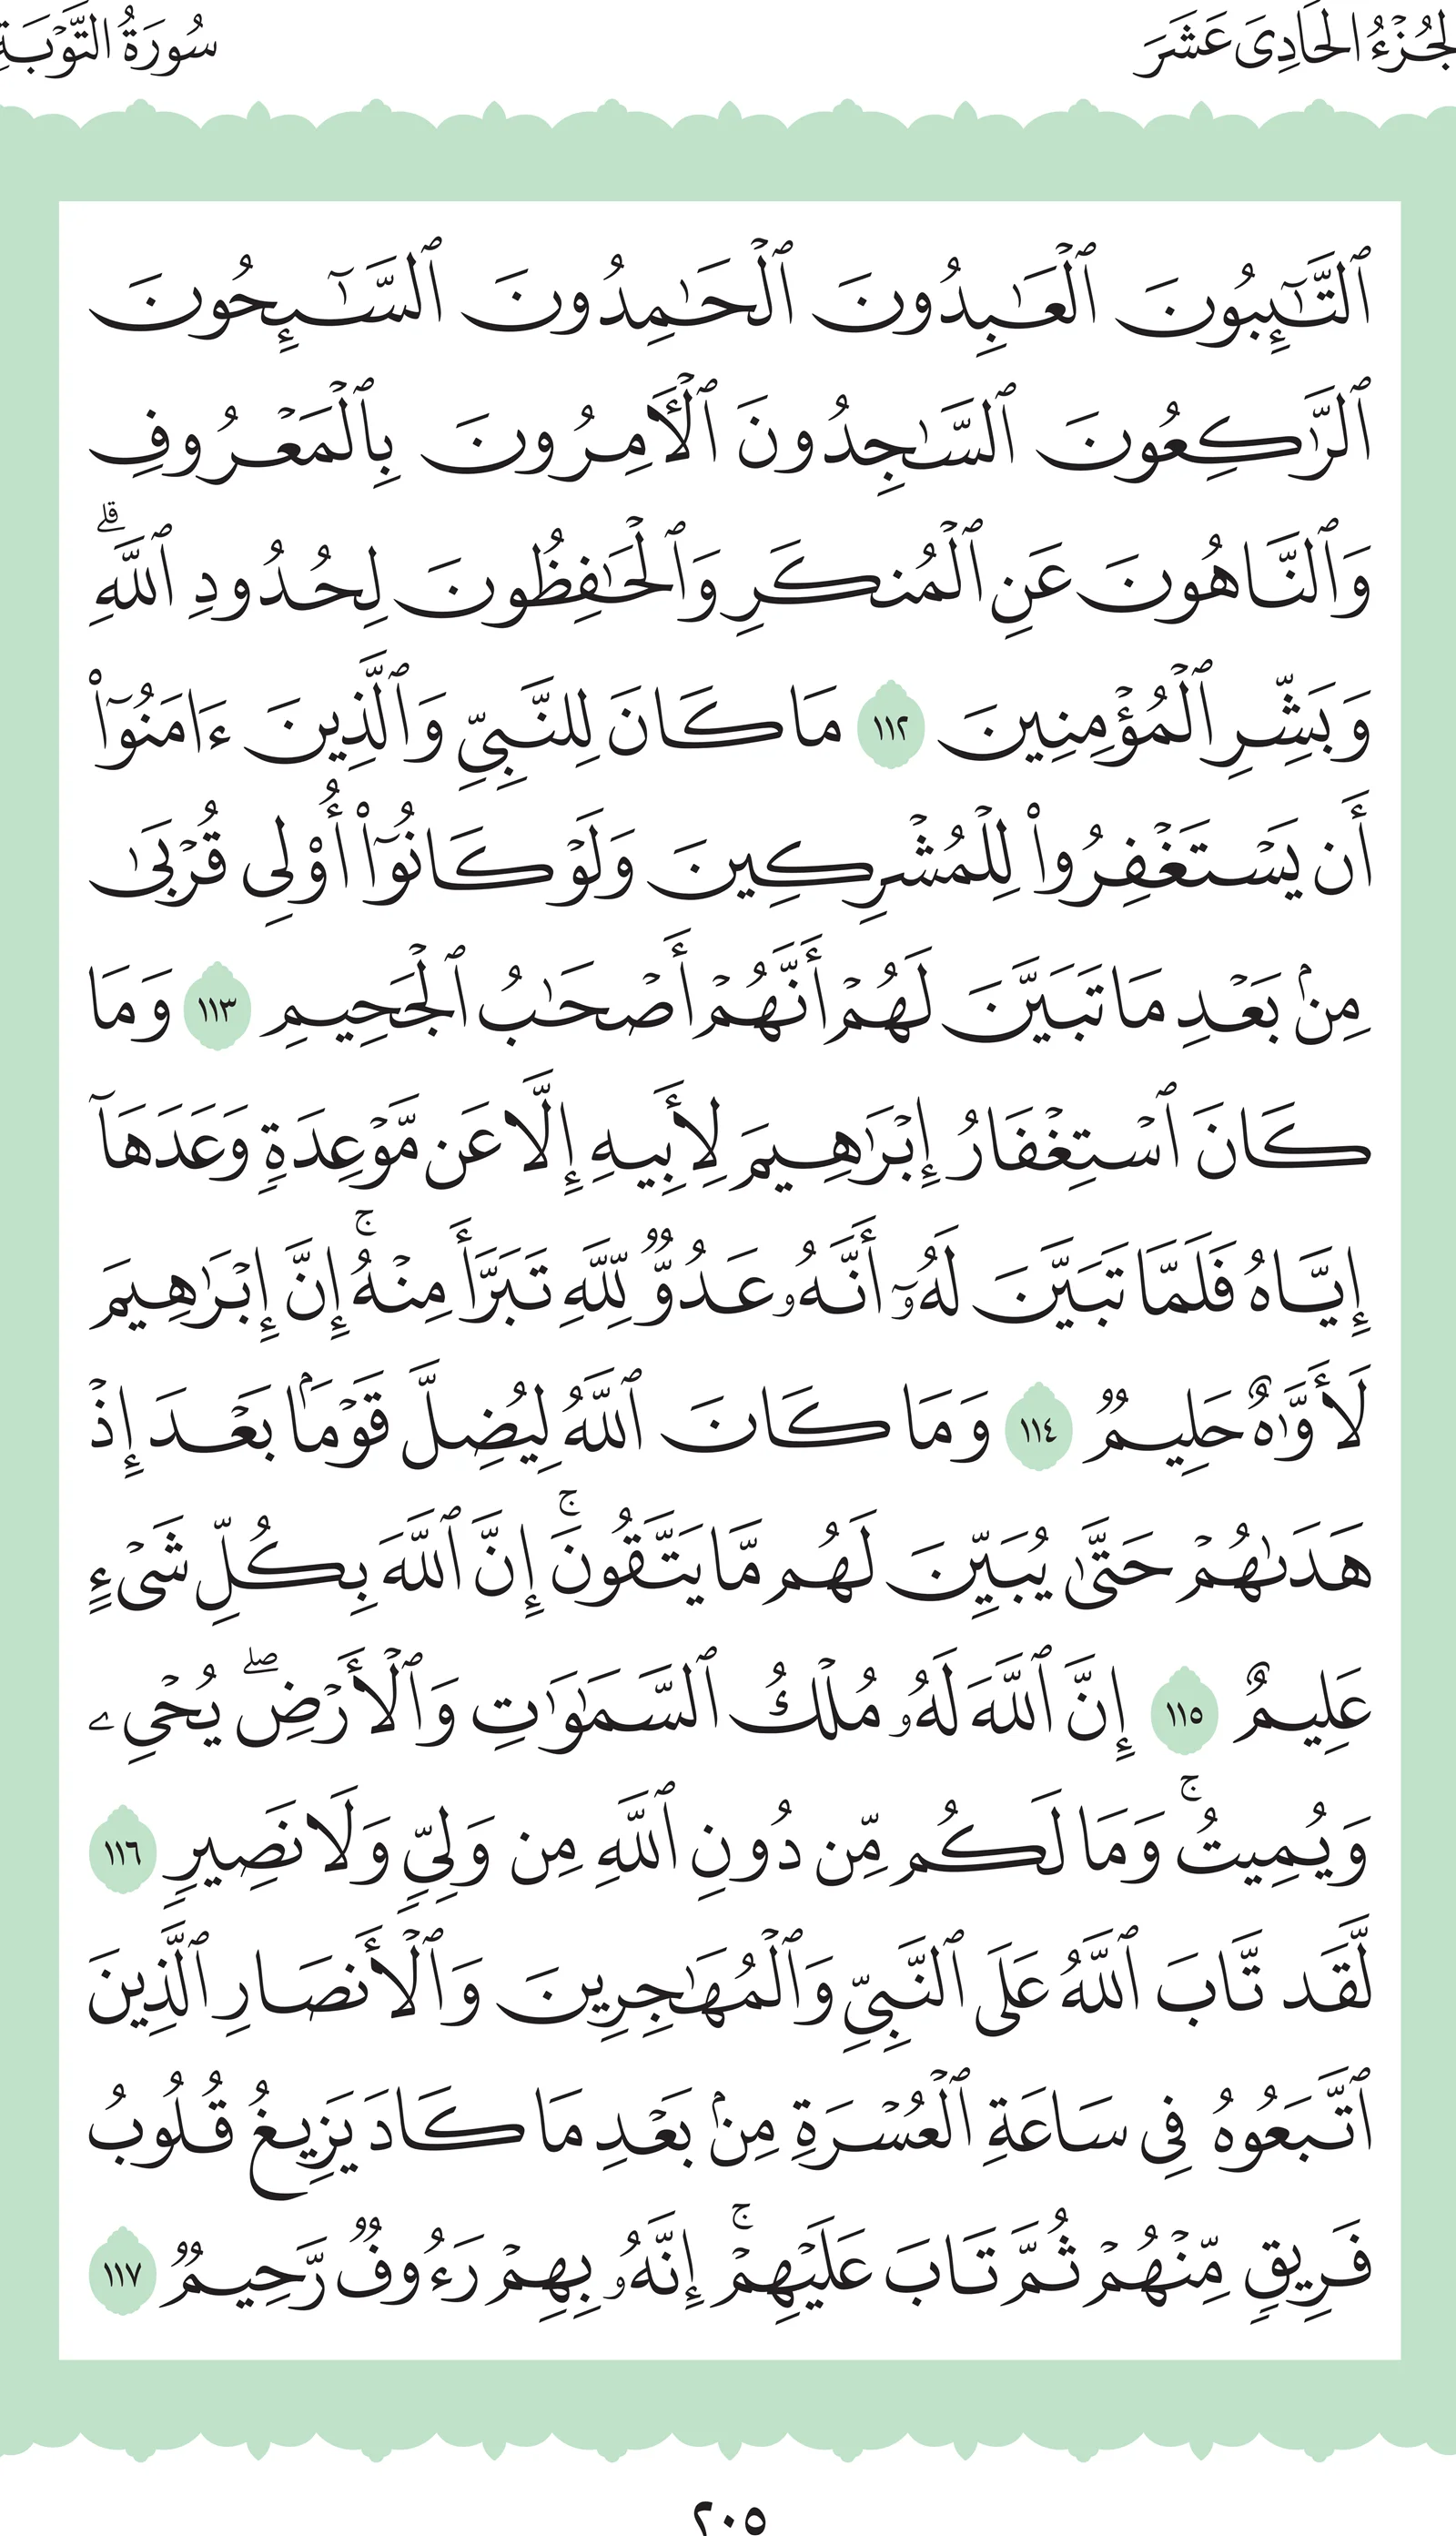 لجُزْءُ الحَادِىَ عَشَرَ
سُورَةُ التَّوْبَةِ
ٱلتَّٰٓئِبُونَ ٱلْعَٰبِدُونَ ٱلْحَٰمِدُونَ ٱلسَّٰٓئِحُونَ
ٱلرَّٰكِعُونَ ٱلسَّٰجِدُونَ ٱلْأٓمِرُونَ بِٱلْمَعْرُوفِ
وَٱلنَّاهُونَ عَنِ ٱلْمُنكَرِ وَٱلْحَٰفِظُونَ لِحُدُودِ ٱللَّهِ ۗ
وَبَشِّرِ ٱلْمُؤْمِنِينَ ١١٢ مَا كَانَ لِلنَّبِيِّ وَٱلَّذِينَ ءَامَنُوٓا۟
أَن يَسْتَغْفِرُوا۟ لِلْمُشْرِكِينَ وَلَوْ كَانُوٓا۟ أُو۟لِى قُرْبَىٰ
مِنۢ بَعْدِ مَا تَبَيَّنَ لَهُمْ أَنَّهُمْ أَصْحَٰبُ ٱلْجَحِيمِ ١١٣ وَمَا
كَانَ ٱسْتِغْفَارُ إِبْرَٰهِيمَ لِأَبِيهِ إِلَّا عَن مَّوْعِدَةٍ وَعَدَهَآ
إِيَّاهُ فَلَمَّا تَبَيَّنَ لَهُۥٓ أَنَّهُۥ عَدُوٌّ لِّلَّهِ تَبَرَّأَ مِنْهُ ۚ إِنَّ إِبْرَٰهِيمَ
لَأَوَّٰهٌ حَلِيمٌ ١١٤ وَمَا كَانَ ٱللَّهُ لِيُضِلَّ قَوْمًۢا بَعْدَ إِذْ
هَدَىٰهُمْ حَتَّىٰ يُبَيِّنَ لَهُم مَّا يَتَّقُونَ ۚ إِنَّ ٱللَّهَ بِكُلِّ شَىْءٍ
عَلِيمٌ ١١٥ إِنَّ ٱللَّهَ لَهُۥ مُلْكُ ٱلسَّمَٰوَٰتِ وَٱلْأَرْضِ ۖ يُحْىِۦ
وَيُمِيتُ ۚ وَمَا لَكُم مِّن دُونِ ٱللَّهِ مِن وَلِىٍّ وَلَا نَصِيرٍ ١١٦
لَّقَد تَّابَ ٱللَّهُ عَلَى ٱلنَّبِىِّ وَٱلْمُهَٰجِرِينَ وَٱلْأَنصَارِ ٱلَّذِينَ
ٱتَّبَعُوهُ فِى سَاعَةِ ٱلْعُسْرَةِ مِنۢ بَعْدِ مَا كَادَ يَزِيغُ قُلُوبُ
فَرِيقٍ مِّنْهُمْ ثُمَّ تَابَ عَلَيْهِمْ ۚ إِنَّهُۥ بِهِمْ رَءُوفٌ رَّحِيمٌ ١١٧
٢٠٥